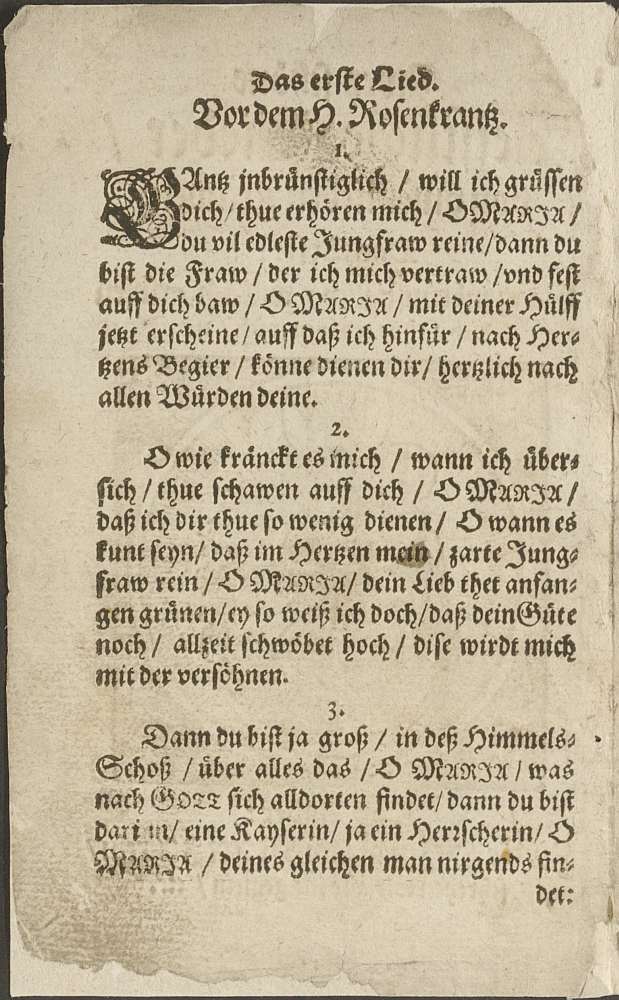 Das erste Lied.
Vor dem H. Rosenkrantz.
1.
GAntz jnbrünstiglich / will ich grüssen
dich / thue erhören mich / O MARJA /
du vil edleste Jungfraw reine / dann du
bist die Fraw / der ich mich vertraw / vnd fest
auff dich baw / O MARJA / mit deiner Hülff
jetzt erscheine / auff daß ich hinfür / nach Her⸗
tzens Begier / könne dienen dir / hertzlich nach
allen Würden deine.
2.
O wie kränckt es mich / wann ich über⸗
sich / thue schawen auff dich / O MARJA /
daß ich dir thue so wenig dienen / O wann es
kunt seyn / daß im Hertzen mein / zarte Jung⸗
fraw rein / O MARJA / dein Lieb thet anfan⸗
gen grünen / ey so weiß ich doch / daß dein Güte
noch / allzeit schwöbet hoch / dise wirdt mich
mit der versöhnen.
3.
Dann du bist ja groß / in deß Himmels⸗
Schoß / über alles das / O MARJA / was
nach GOTT sich alldorten findet / dann du bist
darinn / eine Kayserin / ja ein Herrscherin / O
MARJA / deines gleichen man nirgends fin⸗
det: